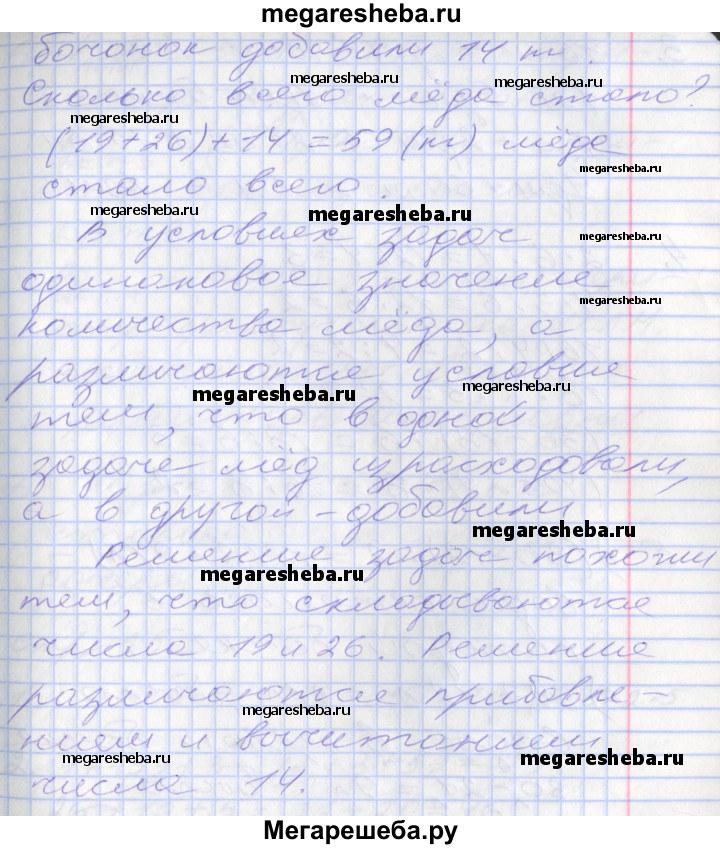 megaresheba.ru
бочонок добавили 14 кг.
megaresheba.ru
megaresheba.ru
Сколько всего мёда стало?
megaresheba.ru
(19+26)+14=59 (кг) мёда
megaresheba.ru
стало всего.
megaresheba.ru
megaresheba.ru
В условиях задач
megaresheba.ru
одинаковое значение
megaresheba.ru
количества мёда, а
различаются условие
megaresheba.ru
megaresheba.ru
тем, что в доной
задаче мёд израсходовали,
а в другой - добавили
megaresheba.ru
Решение задач похожи
megaresheba.ru
тем, что складываются
числа 19 и 26. Решение
различаются прибавле-
megaresheba.ru
нием и вычитанием
megaresheba.ru
megaresheba.ru
числа 14.
Мегарешеба.ру